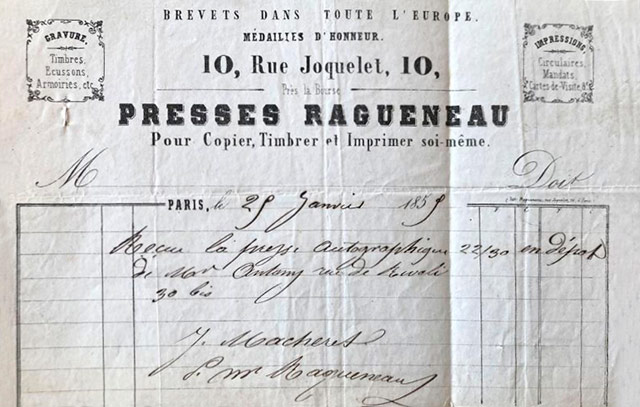 BREVETS DANS TOUTE L'EUROPE.
MÉDAILLES D'HONNEUR.
GRAVURE.
Timbres,
Ecussons,
Armoiries, etc.
IMPRESSIONS,
Circulaires,
Mandats,
Cartes-de-Visite, &c
10, Rue Joquelet, 10,
Près la Bourse
PRESSES RAGUENEAU
Pour Copier, Timbrer et Imprimer soi-même.
M Doit
PARIS, le 25 Janvier 1859
Reçue la presse autographique 22/30 en dépot
de Mr Antony rue de Rivoli
30 bis
J. Macheret
P. mr Ragueneau